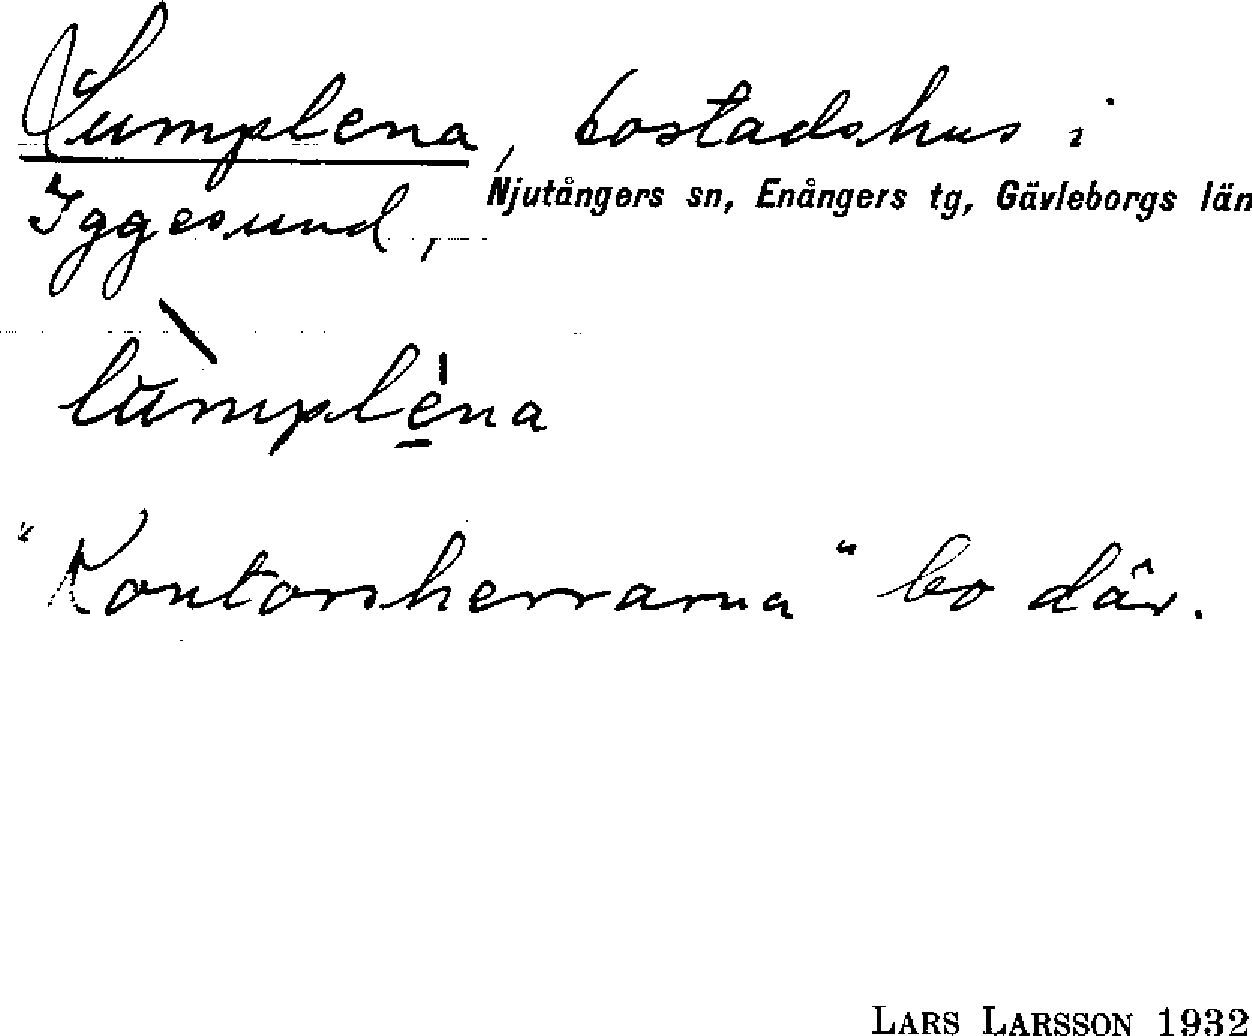 Lumplena, bostadshus i
Iggesund, Njutångers sn, Enångers tg, Gävleborgs län
lùmpléna
"Kontorsherrarna" bo där.
LARS LARSSON 1932